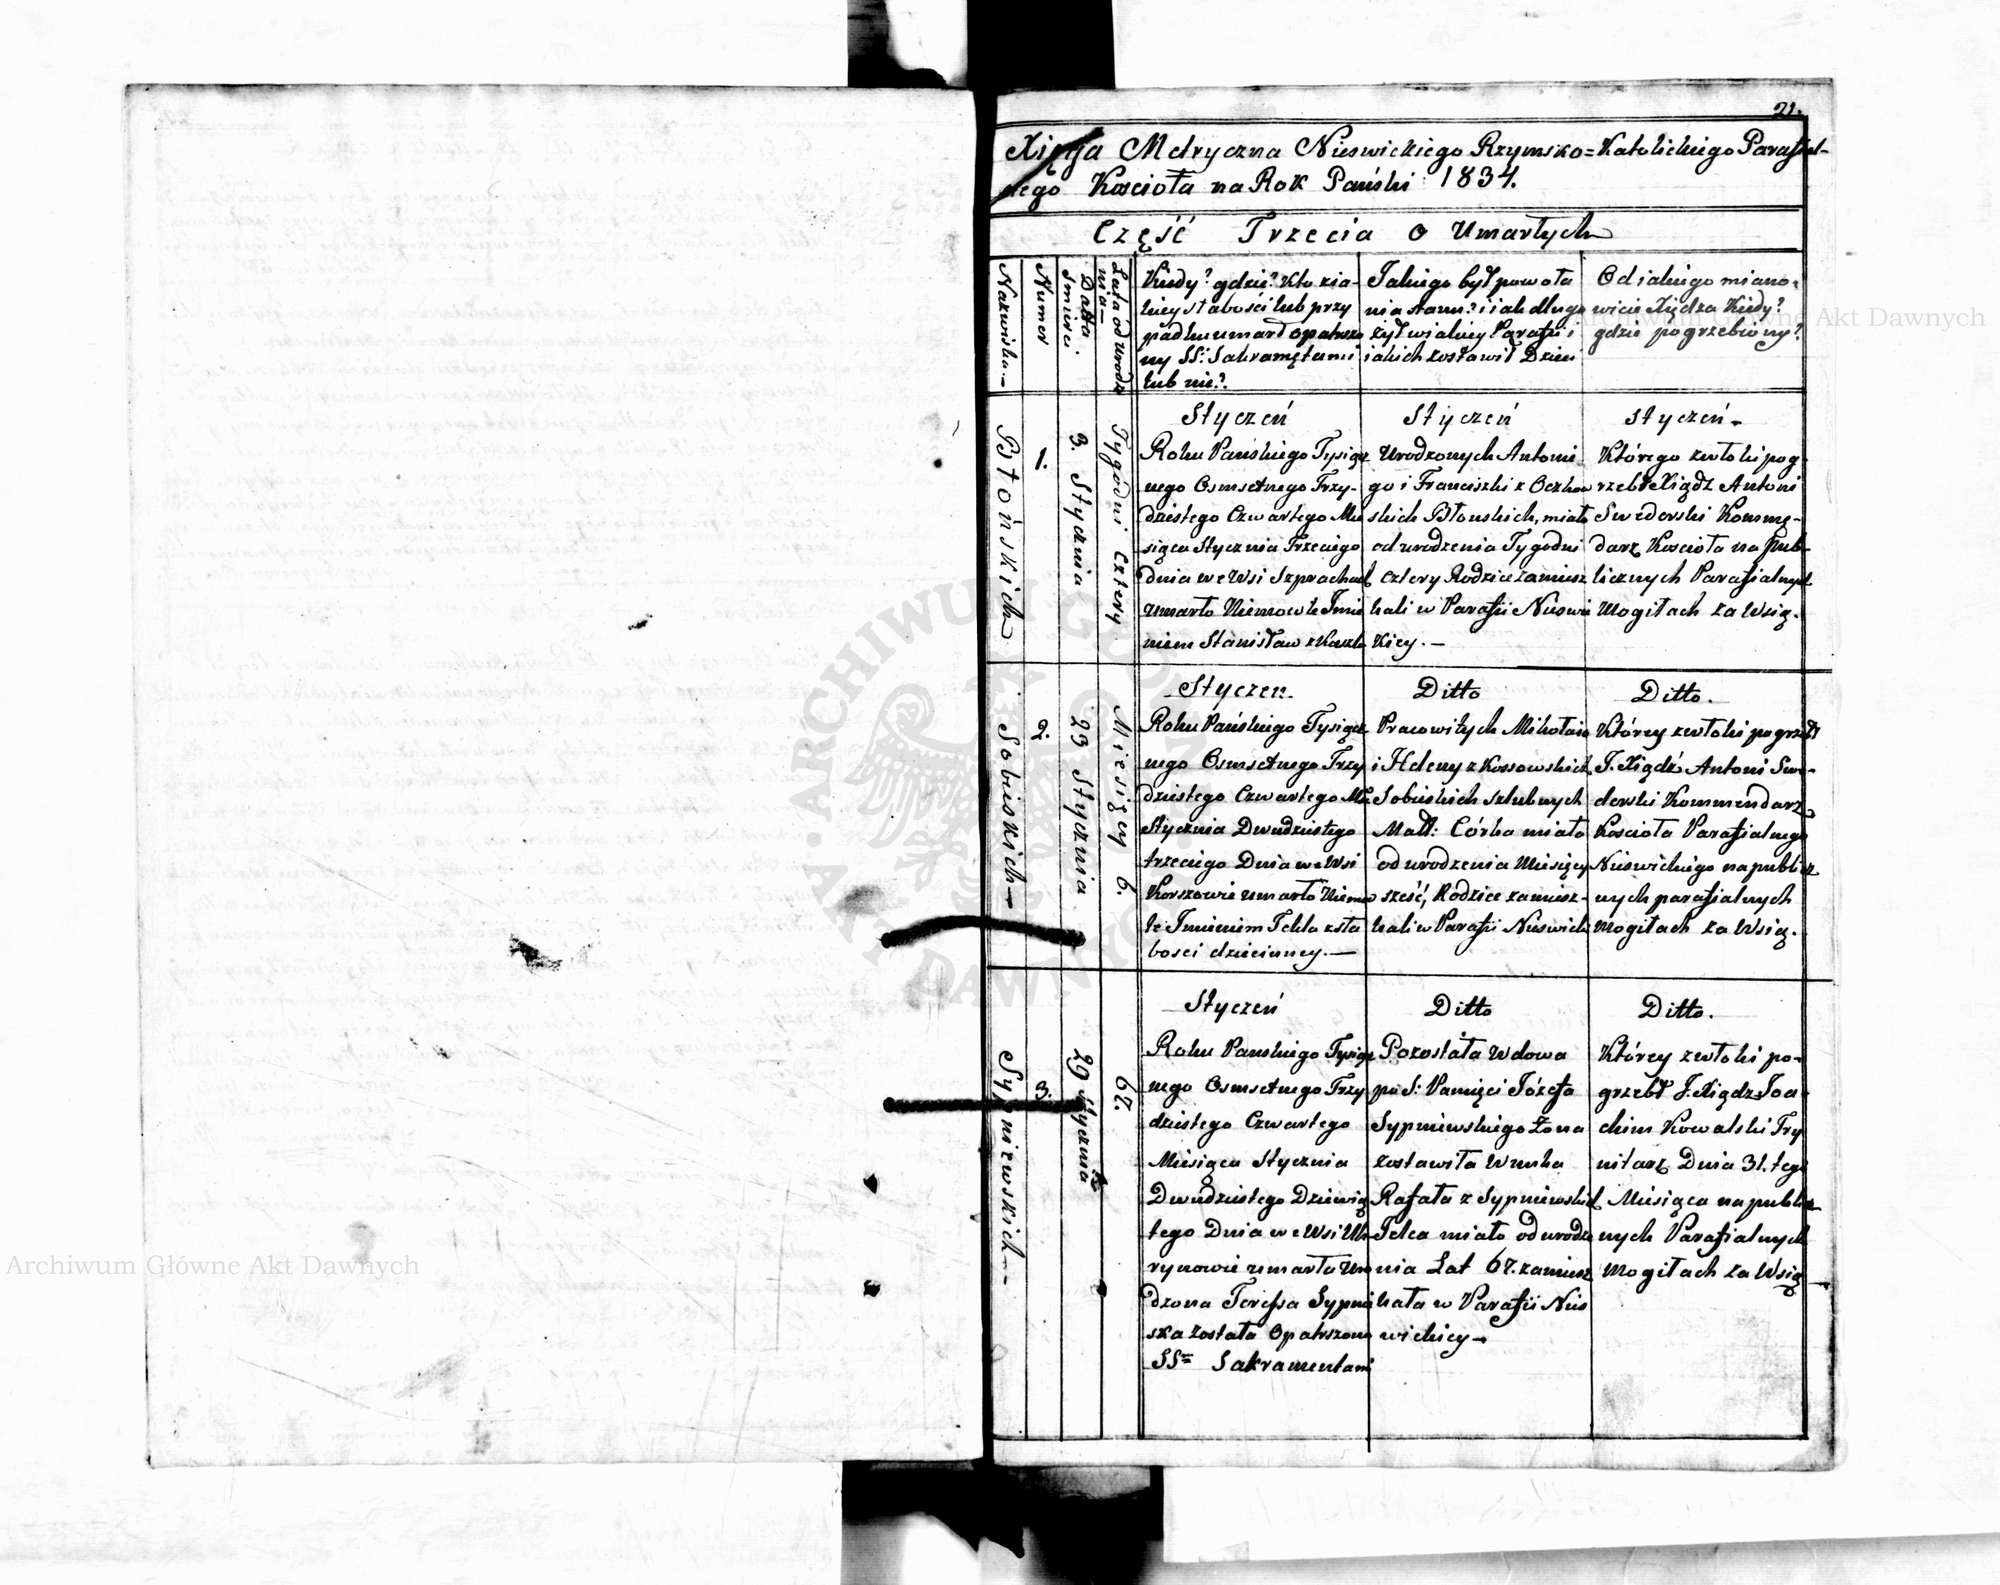 21.
Xięga Metryczna Nieswickiego Rzymsko=Katolickiego Parafial-
nego Koscioła na Rok Pański 1834.
Część Trzecia o Umarłych
Nazwiska.—
Numer
Datta Smierci.
Lata od urodze
nia—
Kiedy? gdzie? Kto z ia-
kiey słabości lub przy
padku umarł opatrzo
ny SS: Sakramętami
lub nie?
Jakiego był powoła
nia stanu? i iak długo
żył w ialiey Parafii i
iakich zostawił Dzieci
Od iakiego miano-
wicie Xiędza Kiedy?
gdzie pogrzebiony?
Błońskich
1.
3. Stycznia
Tygodni Cztery
Styczeń
Roku Pańskiego Tysiącz
nego Osmsetnego Trzy-
dziestego Czwartego Mie
siąca Stycznia Trzeciego
dnia we Wsi Szprachach
umarło Niemowle Imie
niem Stanisław z Kaszlu
Styczeń
Urodzonych Antonie
go i Franciszki z Oczkow
skich Błońskich, miało
od urodzenia Tygodni
cztery Rodzice zamiesz
kali w Parafii Nieswi
Kiey.—
Styczeń—
Którego zwłoki pog-
rzebł Xiądz Antoni
Swederski Kommę-
darz Kosciola na Pub-
licznych Parafialnych
Mogiłach za Wsią.
Sobieskich—
2.
23 Stycznia
Miesięcy 6.
Styczen
Roku Pańskiego Tysiącz
nego Osmsetnego Trzy
dziestego Czwartego Mca
Stycznia Dwudziestego
trzeciego Dnia we Wsi
Korszowie umarło Niemow
le Imieniem Tekla z sła
bosci dziecinney.—
Ditto
Pracowitych Mikołaia
i Heleny z Kossowskich
Sobieskich szlubnych
Małł: Córka miało
od urodzenia Miesięcy
sześć, Rodzice zamiesz-
kali w Parafii Nieswick
Ditto.
Którey zwłoki pogrzebł
J. Xiądz Antoni Swe-
derski Kommendarz
Kosciola Parafialnego
Nieswickiego na publicz
nych parafialnych
Mogiłach za Wsią.
Sypniewskich—
3.
29 Stycznia
67.
Styczeń
Roku Panskiego Tysiącz
nego Osmsetnego Trzy
dziestego Czwartego
Miesiąca Stycznia
Dwudziestego Dziewią
tego Dnia we Wsi Uh-
rynowie umarła Uro
dzona Teressa Sypnie
ska została Opatrzona
SSmi Sakramentami
Ditto
Pozostała Wdowa
po S: Pamięci Józefa
Sypniewskiego Żona
zostawiła Wnuka
Rafała z Sypniewskich
Telca miała od urodze
nia Lat 67. zamiesz
kała w Parafii Nies
wickiey—
Ditto.
Którey zwłoki po-
grzebł J. Xiądz Joa-
chim Kowalski Try
nitarz Dnia 31. tego
Miesiąca na publicz
nych Parafialnych
Mogiłach za Wsią
Archiwum Główne Akt Dawnych
Archiwum Główne Akt Dawnych